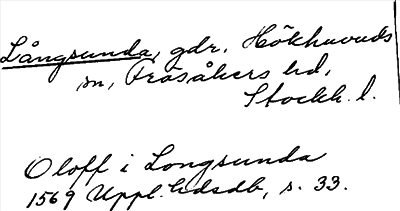 Långsunda, gdr, Hökhuvuds
sn, Frösåkers hd,
Stockh. l.
Oloff i Longsunda
1569 Uppl. hdsdb, s. 33.